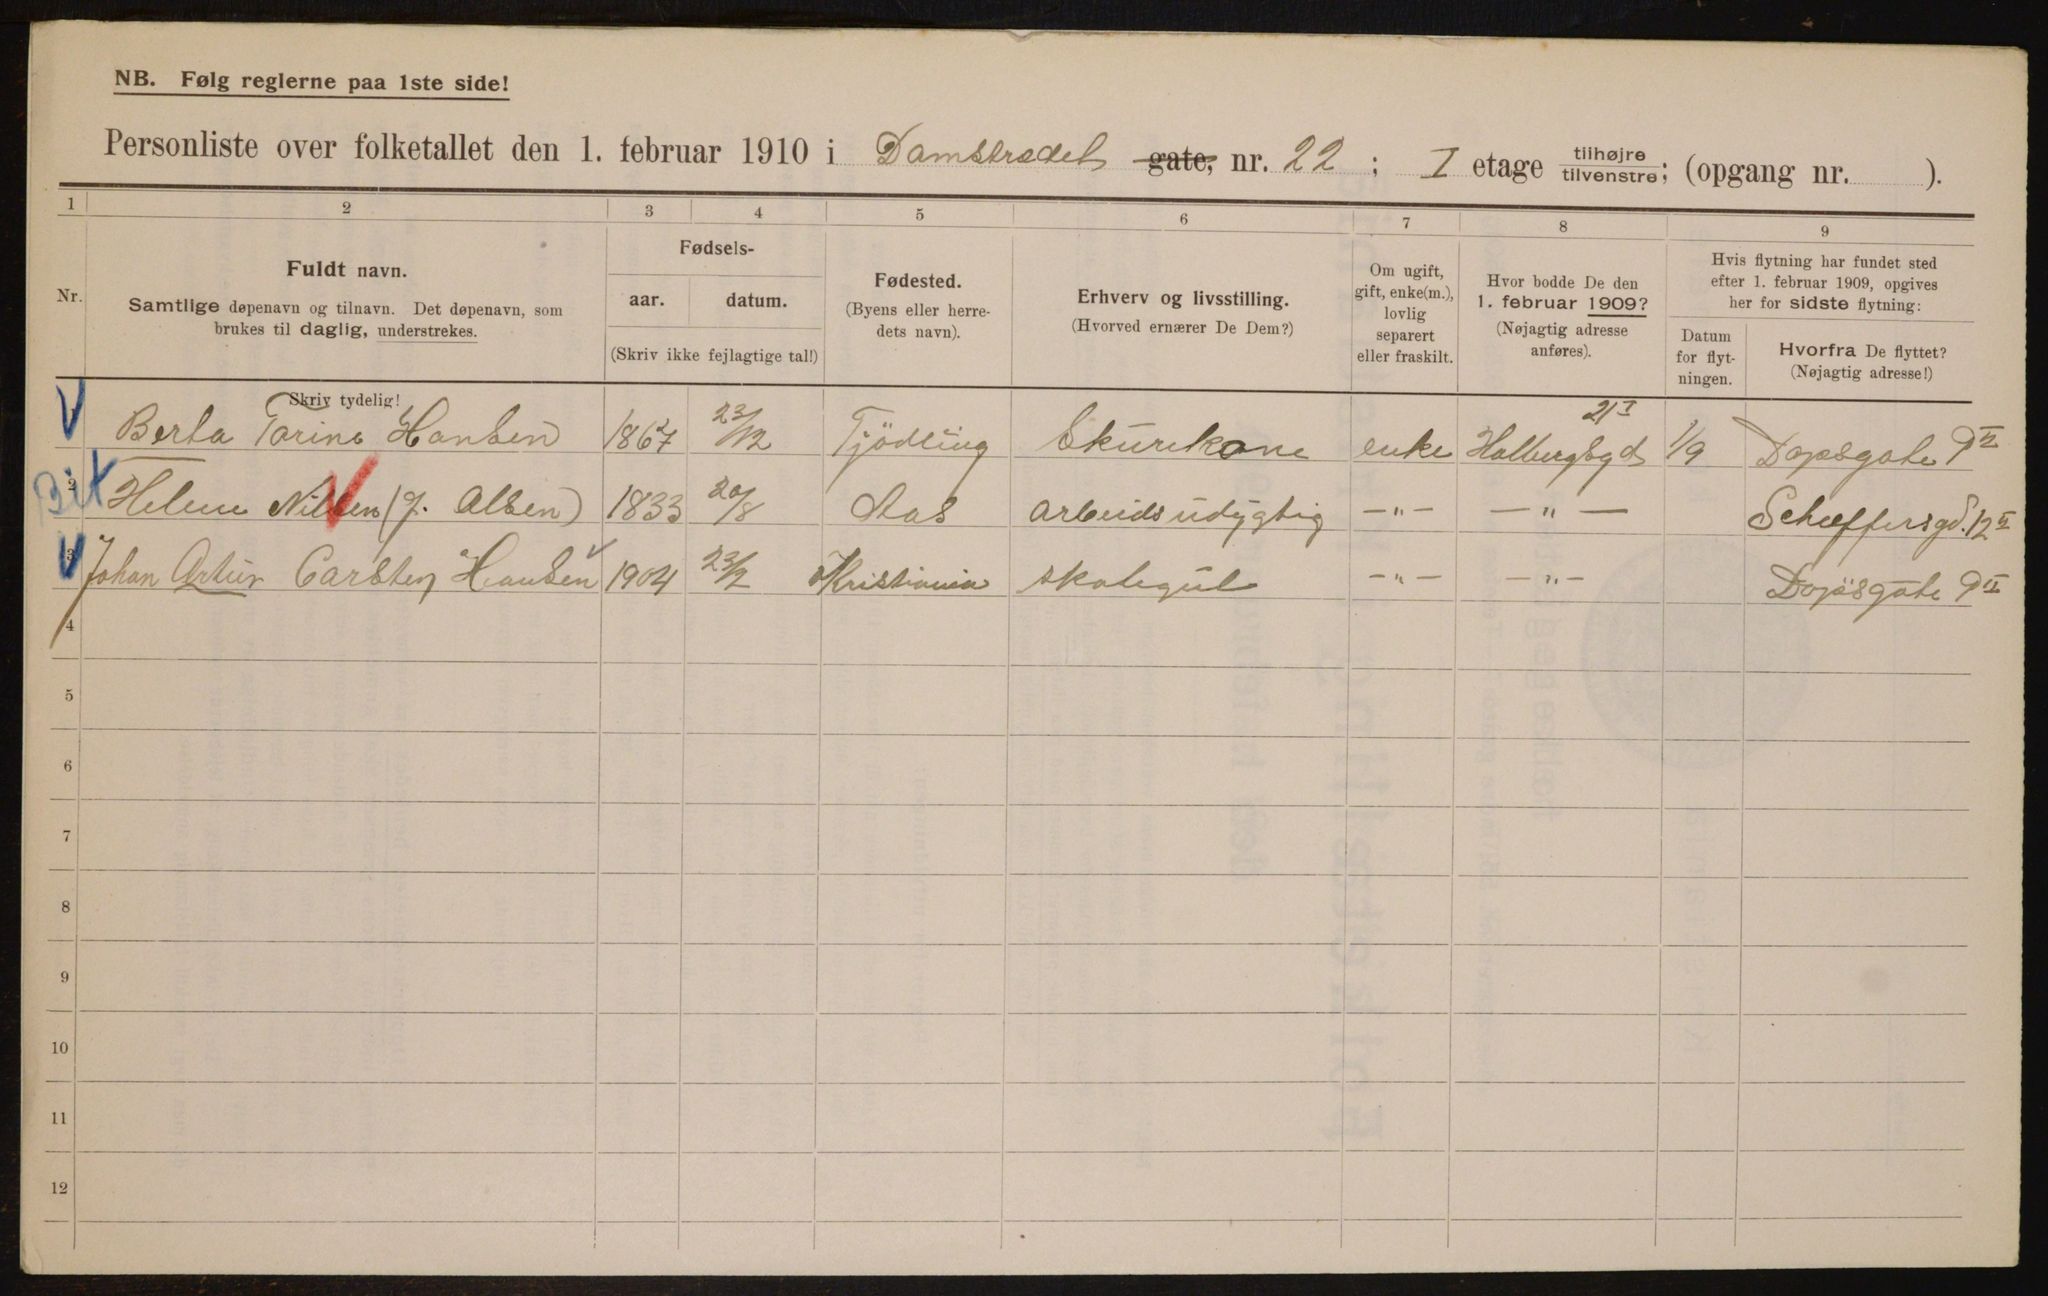 NB. Følg reglerne paa 1ste side!
Personliste over folketallet den 1. februar 1910 i Damstrædet gate, nr. 22 ; I etage tilhøjre tilvenstre; (opgang nr. ).
1 2 3 4 5 6 7 8 9
Nr.
Fuldt navn.
Samtlige døpenavn og tilnavn. Det døpenavn, som
brukes til daglig, understrekes.
Skriv tydelig!
Fødsels-
aar. datum.
(Skriv ikke fejlagtige tal!)
Fødested.
(Byens eller herre-
dets navn).
Erhverv og livsstilling.
(Hvorved ernærer De Dem?)
Om ugift,
gift, enke(m.),
lovlig
separert
eller fraskilt.
Hvor bodde De den
1. februar 1909?
(Nøjagtig adresse
anføres).
Hvis flytning har fundet sted
efter 1. februar 1909, opgives
her for sidste flytning:
Datum
for flyt-
ningen.
Hvorfra De flyttet?
(Nøjagtig adresse!)
Berta Torine Hansen 1867 23/12 Tjödling Skurekone enke Holbergsgd 21 I 1/9 Dopsgate 9 II
2 Helene Nilsen (f. Olsen) 1833 20/8 Aas arbeidsudygtig —„— —„— Scheffersgd. 12 II
3 Johan Artur Carsten Hansen 1904 23/2 Kristiania skolegut —„— —„— Dopsgate 9 II
4
5
6
7
8
9
10
11
12